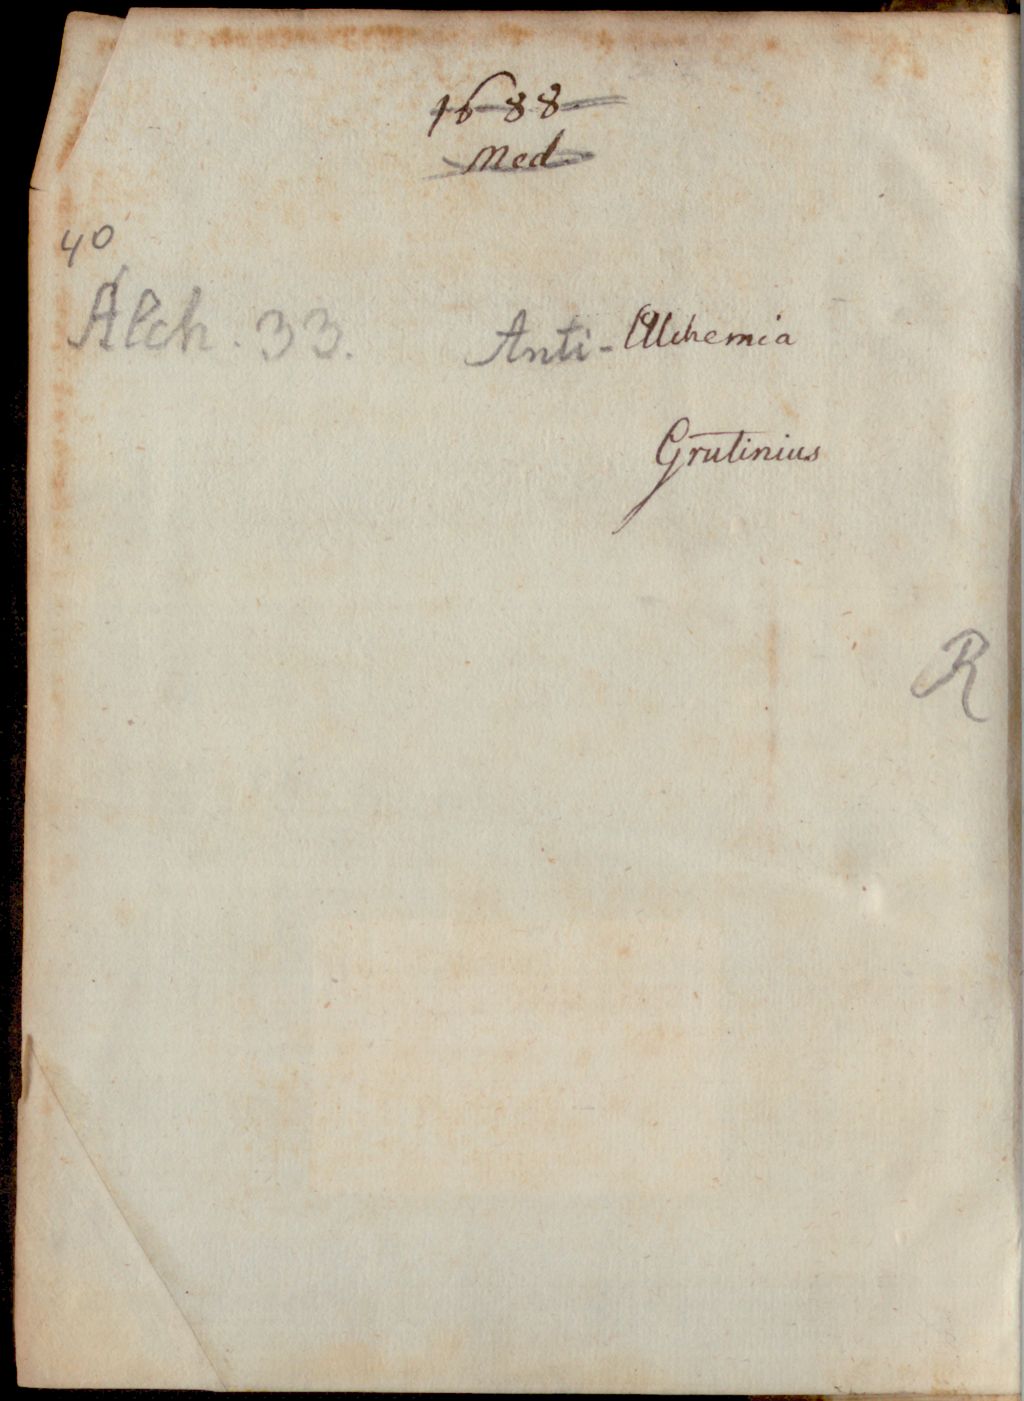 1688
Med.
40
Alch. 33. Anti-Alchemia
Grutinius
R